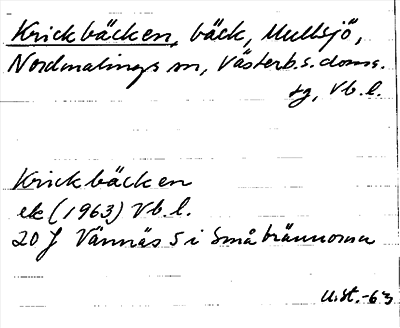 Krickbäcken, bäck, Mullsjö,
Nordmalings sn, Västerb.s. doms.
sg, Vb. l.
Krickbäcken
ek (1963) Vb. l.
20 J Vännäs S i Småbrännorna
u.st. -63